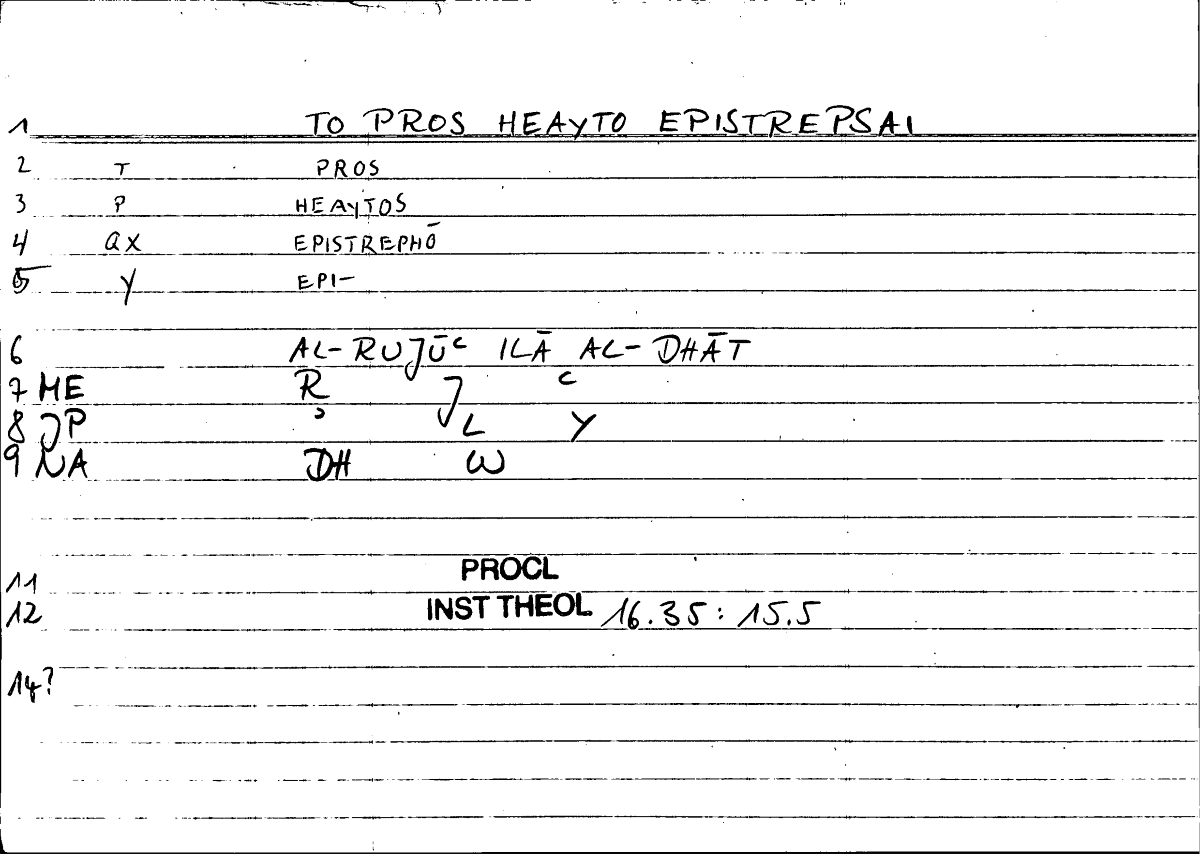 1 TO PROS HEAYTO EPISTREPSAI
2 T PROS
3 P HEAYTOS
4 QX EPISTREPHŌ
5 Y EPI-
6 AL-RUJŪC ILĀ AL-DHĀT
7 ME R J C
8 JP ɔ L Y
9 NA DH W
11 PROCL
12 INST THEOL 16.35:15.5
14?